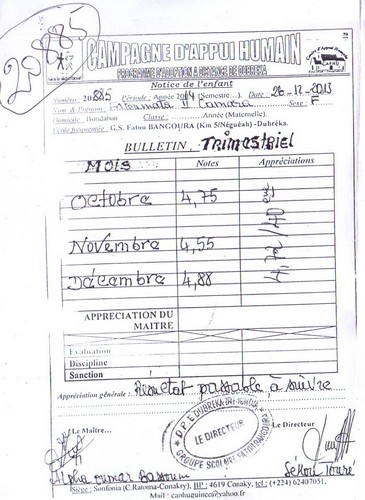 20885
CAMPAGNE D'APPUI HUMAIN
PROGRAMME D'ADOPTION A DISTANCE DE DUBREKA
Notice de l'enfant
Numéro: 20885 Période: Année 2014 (Semestre…). Date: 26-12-2013
Nom & Prénom: II Camara Sexe: F
Domicile: Bondabon Classe: Année (Maternelle).
Ecole fréquentée: G.S. Fatou BANGOURA (Km 5/Néguéah) -Dubréka.
BULLETIN Trimestriel
Mois Notes Appréciations
Octobre 4,75
Novembre 4,55
Décembre 4,88
4,72/40
APPRECIATION DU MAITRE
Evaluation
Discipline
Sanction
Appréciation générale: Résultat passable, à suivre
Le Maître… Le Directeur
LE DIRECTEUR
Alpha oumar Sékou Touré
Siège: Sinfonia (C.Ratoma-Conakry), BP: 4619 Conaky, tel: (+224) 62407051,
Mail: canhuguinee@yahoo.fr